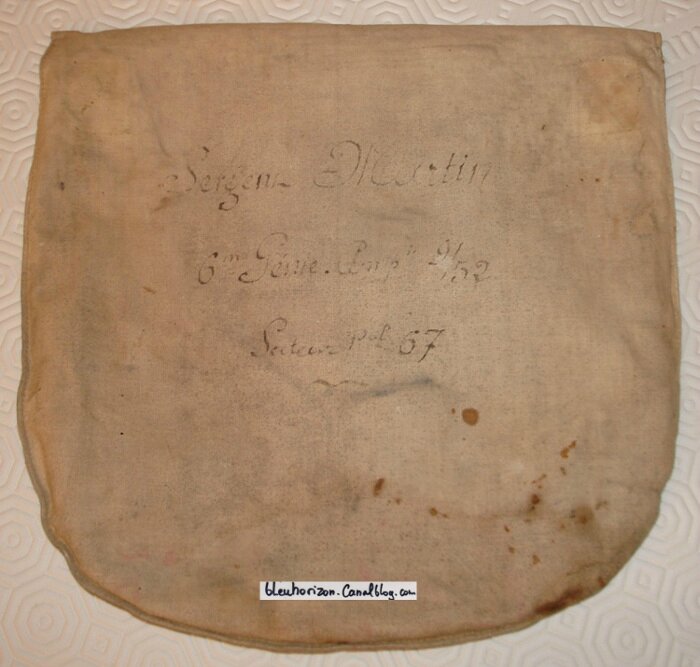 Sergent Martin
6me Génie. Compie 9/52
Secteur Pal 67
bleuhorizon.Canalblog.com